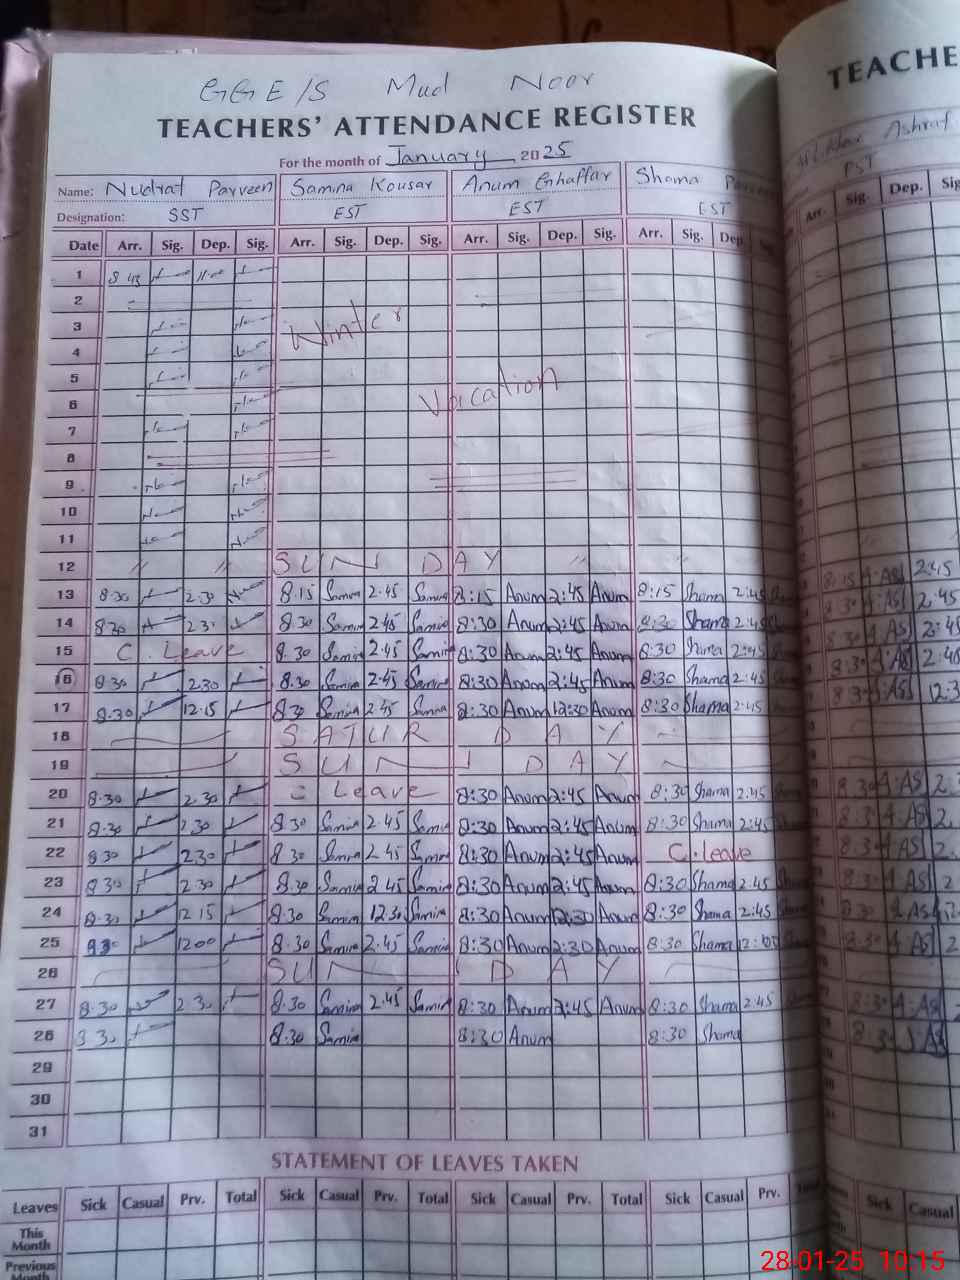 GGE/S Mud Noor
TEACHERS' ATTENDANCE REGISTER
For the month of January 2025
Name: Nudrat Parveen Samina Kousar Anum Ghaffar Shama
Designation: SST EST EST EST
Date Arr. Sig. Dep. Sig. Arr. Sig. Dep. Sig. Arr. Sig. Dep. Sig. Arr. Sig. Dep.
1 8 45
2
3 Winter
4
5
6 Vacation
7
8
9
10
11
12 " " SUN DAY " "
13 8.30 2.30 8.15 Samina 2.45 Samina 8:15 Anum 2:45 Anum 8:15 Shama 2:45
14 8.30 2.30 8.30 Samina 2.45 Samina 8:30 Anum 2:45 Anum 8:30 Shama 2:45
15 C. Leave 8.30 Samina 2.45 Samina 8:30 Anum 2:45 Anum 8:30 Shama 2:45
16 8.30 2.30 8.30 Samina 2.45 Samina 8:30 Anum 2:45 Anum 8:30 Shama 2:45
17 8.30 12.15 8.30 Samina 2.45 Samina 8:30 Anum 12:30 Anum 8:30 Shama 2:45
18 SATUR DAY
19 SUN DAY
20 8.30 2.30 C Leave 8:30 Anum 2:45 Anum 8:30 Shama 2:45
21 8.30 2.30 8.30 Samina 2.45 Samina 8:30 Anum 2:45 Anum 8:30 Shama 2:45
22 8.30 2.30 8.30 Samina 2.45 Samina 8:30 Anum 2:45 Anum C. leave
23 8.30 2.30 8.30 Samina 2.45 Samina 8:30 Anum 2:45 Anum 8:30 Shama 2.45
24 8.30 12.15 8.30 Samina 12.30 Samina 8:30 Anum 12:30 Anum 8:30 Shama 2:45
25 8.30 12.00 8.30 Samina 2.45 Samina 8:30 Anum 2:30 Anum 8:30 Shama
26 SUN DAY
27 8.30 2.30 8.30 Samina 2.45 Samina 8:30 Anum 2:45 Anum 8:30 Shama 2.45
28 8.30 8.30 Samina 8:30 Anum 8:30 Shama
29
30
31
STATEMENT OF LEAVES TAKEN
Leaves Sick Casual Prv. Total Sick Casual Prv. Total Sick Casual Prv. Total Sick Casual Prv.
This Month
Previous Month
TEACHE
Ashraf
PST
Arr. Sig. Dep. Sig
8:15 A.AS 2:45
Sick Casual
28-01-25 10:15